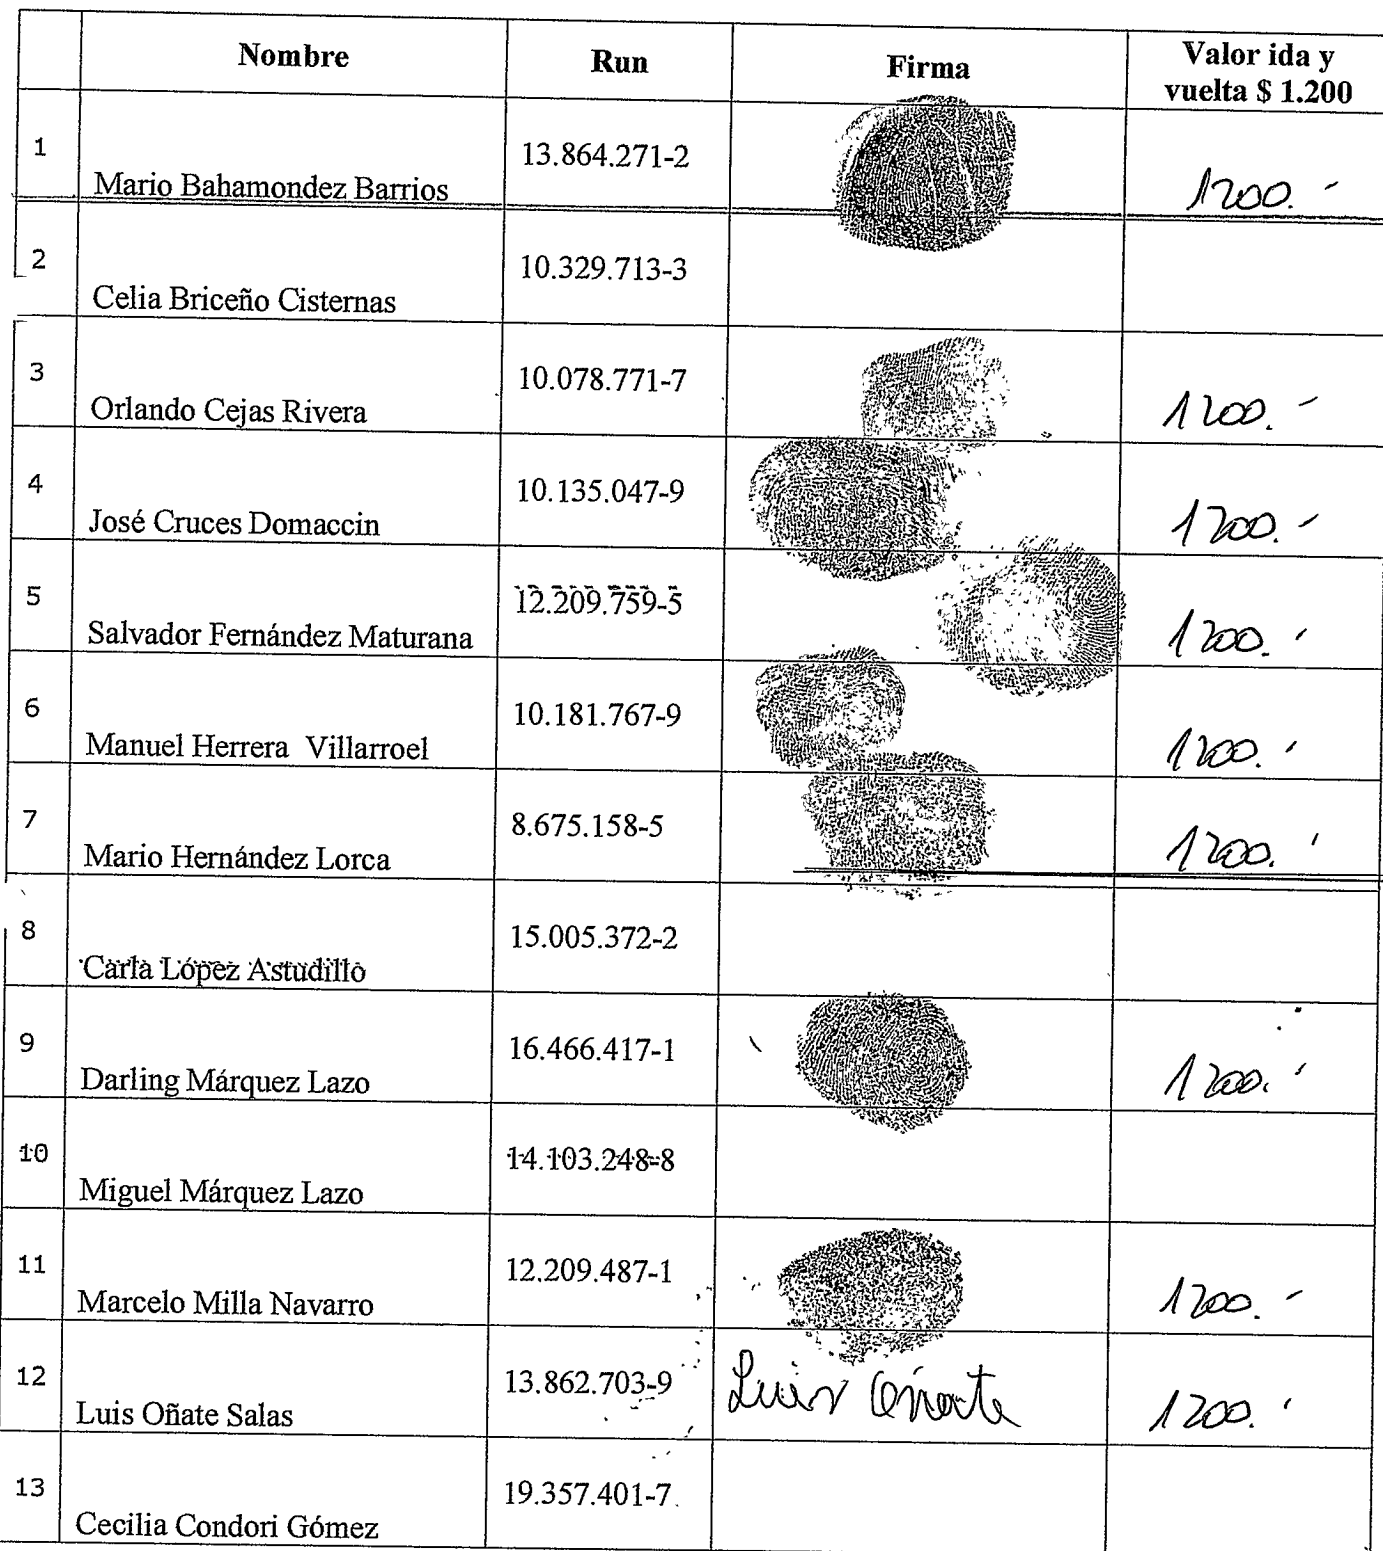 Nombre Run Firma Valor ida y
vuelta $ 1.200
1 Mario Bahamondez Barrios 13.864.271-2 1200.-
2 Celia Briceño Cisternas 10.329.713-3
3 Orlando Cejas Rivera 10.078.771-7 1200.-
4 José Cruces Domaccin 10.135.047-9 1200.-
5 Salvador Fernández Maturana 12.209.759-5 1200.-
6 Manuel Herrera Villarroel 10.181.767-9 1200.-
7 Mario Hernández Lorca 8.675.158-5 1200.-
8 Carla López Astudillo 15.005.372-2
9 Darling Márquez Lazo 16.466.417-1 1200.-
10 Miguel Márquez Lazo 14.103.248-8
11 Marcelo Milla Navarro 12.209.487-1 1200.-
12 Luis Oñate Salas 13.862.703-9 Luis Oñate 1200.-
13 Cecilia Condori Gómez 19.357.401-7